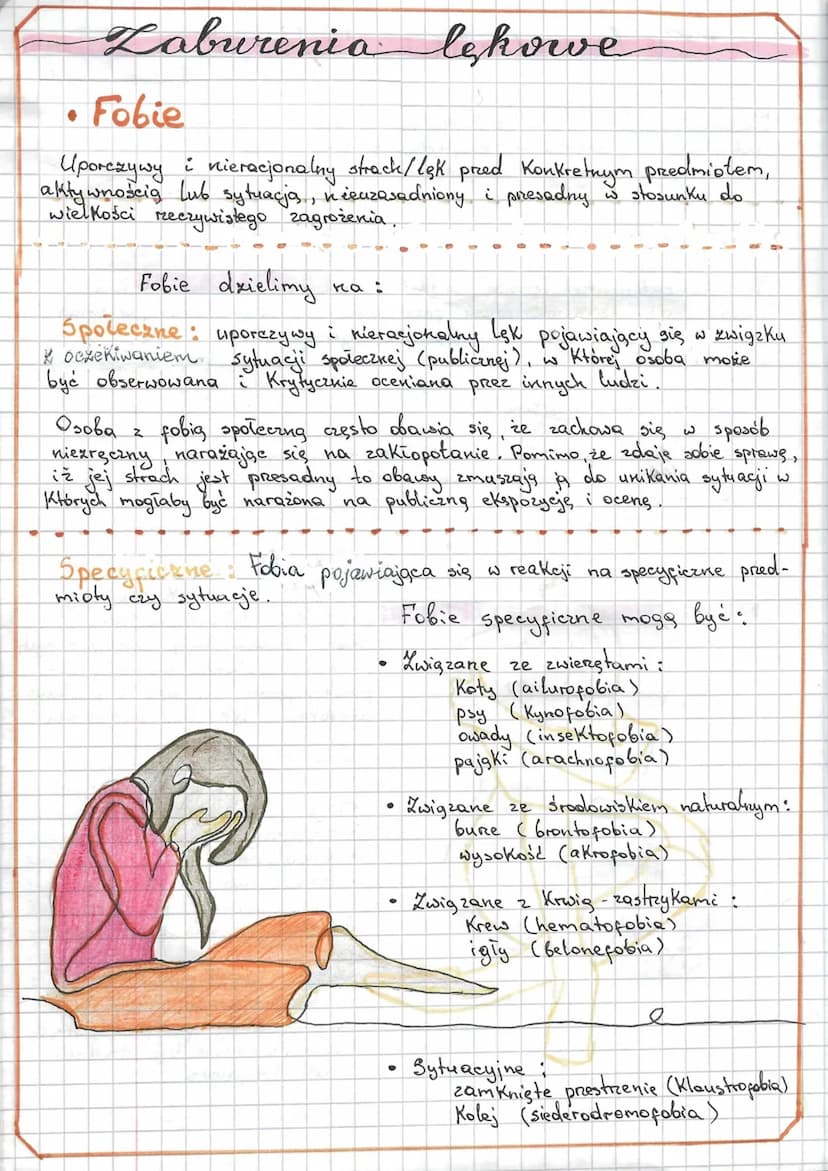 Zaburenia lękowe
• Fobie
Uporczywy i nieracjonalny strach/lęk przed konkretnym przedmiotem,
aktywnością lub sytuacją, nieuzasadniony i przesadny w stosunku do
wielkości rzeczywistego zagrożenia.
Fobie dzielimy na:
Społeczne: uporczywy i nieracjonalny lęk pojawiający się w związku
z oczekiwaniem sytuacji społecznej (publicznej), w której osoba może
być obserwowana i krytycznie oceniana przez innych ludzi.
Osoba z fobią społeczną często obawia się, że zachowa się w sposób
niezręczny, narażając się na zakłopotanie. Pomimo, że zdaje sobie sprawę,
iż jej strach jest przesadny to obawy zmuszają ją do unikania sytuacji w
których mogłaby być narażona na publiczną ekspozycję i ocenę.
Specyficzne: Fobia pojawiająca się w reakcji na specyficzne przed-
mioty czy sytuacje.
Fobie specyficzne mogą być:
• Związane ze zwierzętami:
Koty (ailurofobia)
psy (kynofobia)
owady (insektofobia)
pająki (arachnofobia)
• Związane ze środowiskiem naturalnym:
burze (brontofobia)
wysokość (akrofobia)
• Związane z krwią - zastrzykami:
Krew (hematofobia)
igły (belonefobia)
• Sytuacyjne:
zamknięte przestrzenie (klaustrofobia)
Kolej (siederodromofobia)